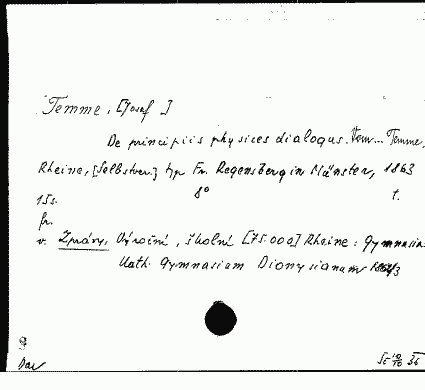 Temme, [Josef ]
De principiis physices dialogus. Vom... Temme.
Rheine, [Selbstver.] typ Fr. Regensberg in Münster, 1863
8° t.
15s.
fr.
v. Zprávy, Výroční, školní [75.000] Rheine: Gymnasium
Kath. Gymnasium Dionysianum
9
Dar